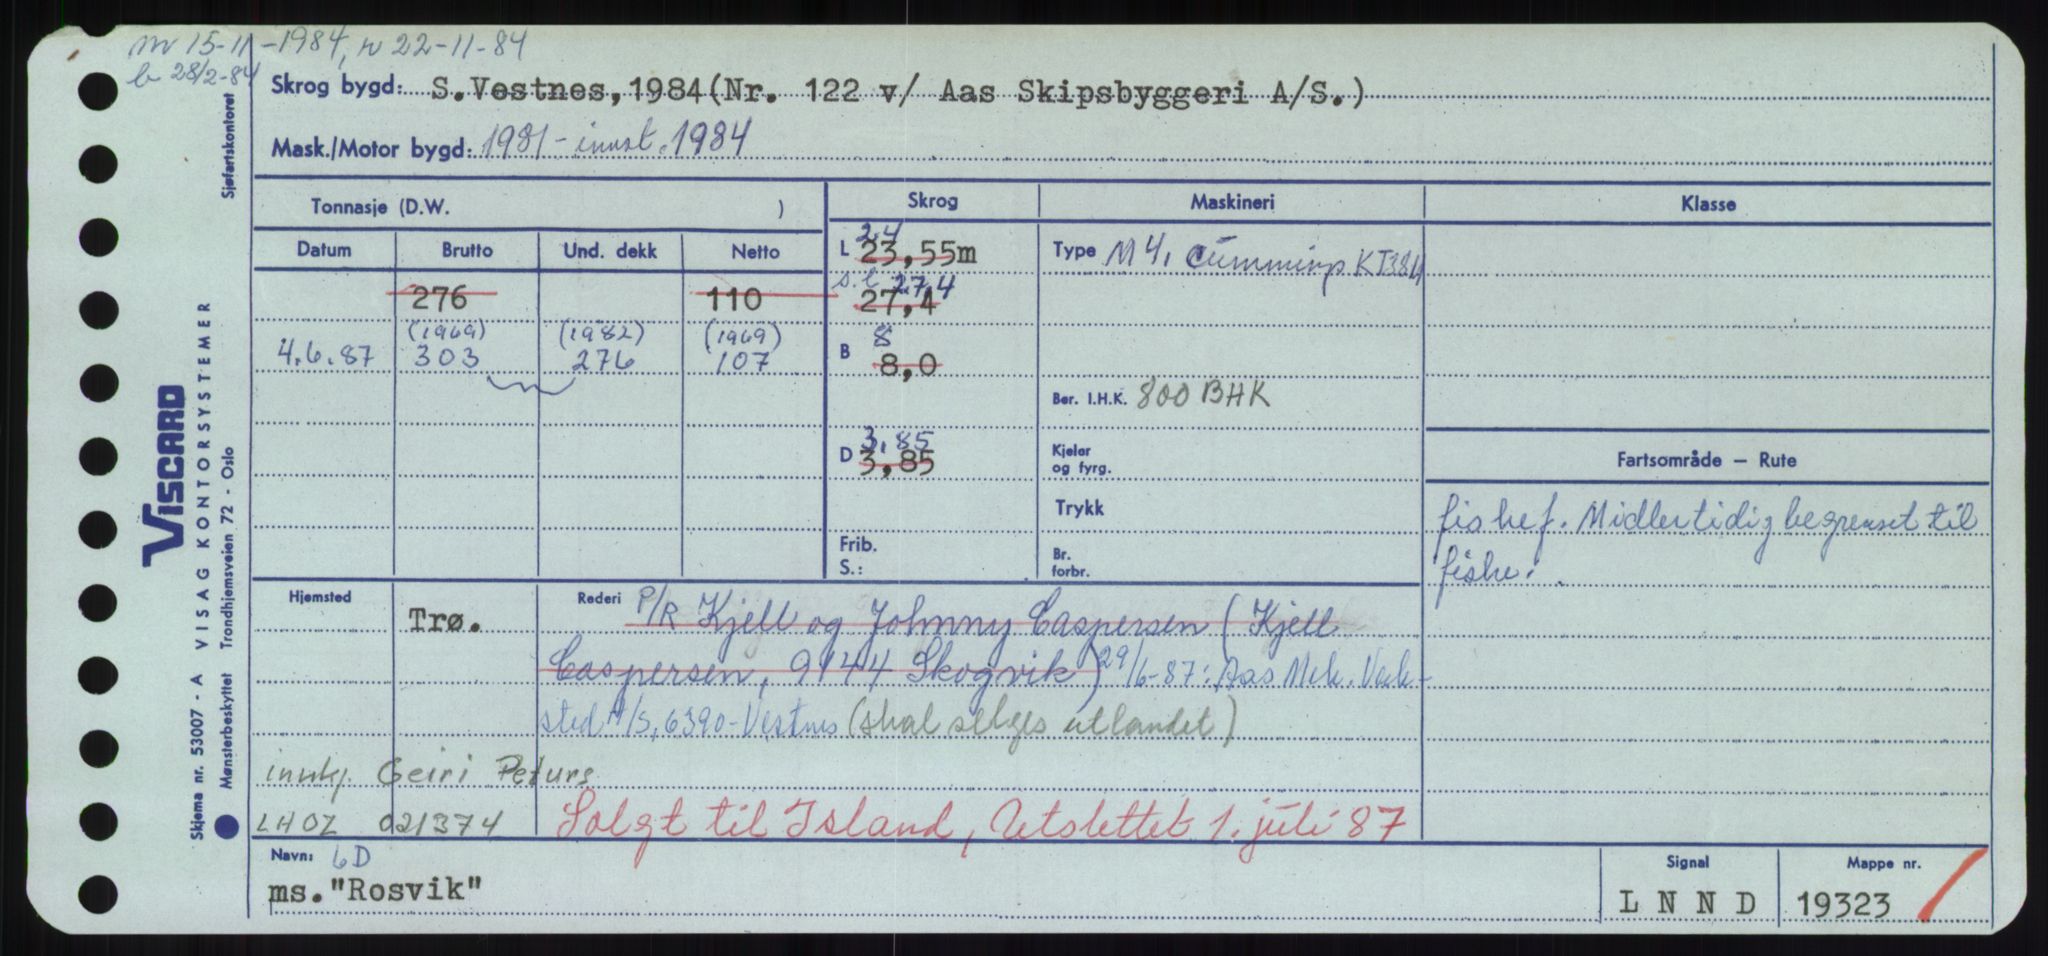 m 15-11-1984, r 22-11-84
b 28/2-84
Skrog bygd: S.Vestnes,1984(Nr. 122 v/ Aas Skipsbyggeri A/S.)
Mask./Motor bygd: 1981 - innst. 1984
Tonnasje (D.W. )
Skrog Maskineri Klasse
Datum Brutto Und. dekk Netto
24
L 23,55m
Type M 4, Cummings KT38M
276 110
s.l 27,4
27,4
(1969) (1982) (1969)
4.6.87 303 276 107
8
B 8,0
Ber. I.H.K. 800 BHK
3,85
D 3,85
Kjeler og fyrg.
Fartsområde – Rute
Trykk
fiskef. Midlertidig begrenset til
fiske.
Frib.
S.:
Br. forbr.
Hjemsted
Trø.
Rederi P/R Kjell og Johnny Caspersen (Kjell
Caspersen, 9144 Skogvik) 29/6-87: Aas Mek. Verk-
sted A/S, 6390-Vestnes (skal selges utlandet)
Geiri Peturs
LHOZ 021374
Solgt til Island, Utslettet 1. juli 87
Navn: 6D
ms."Rosvik"
Signal
L N N D
Mappe nr.
19323
Sjøfartskontoret
VISCARD
VISAG KONTORSYSTEMER
Trondhjemsveien 72 - Oslo
Skjema nr. 53007 - A
Mønsterbeskyttet